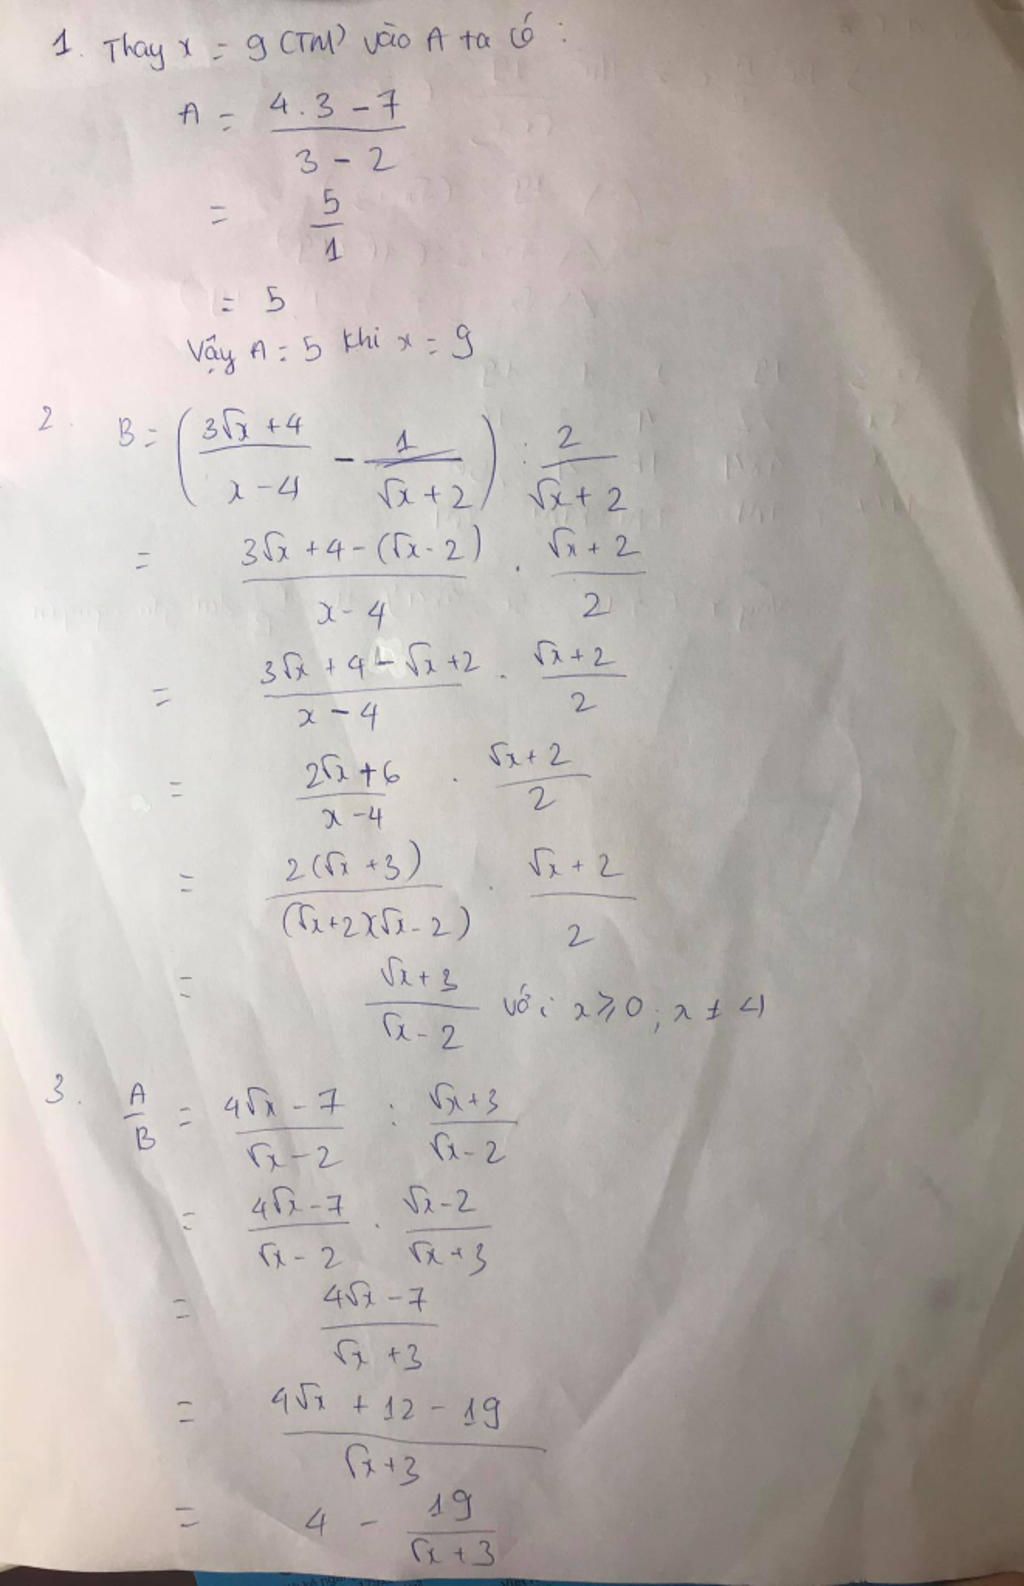 1. Thay x = 9 (TM) vào A ta có :
A = (4.3 - 7)/(3 - 2)
= 5/1
= 5
Vậy A = 5 khi x = 9
2. B = ((3√x + 4)/(x - 4) - 1/(√x + 2)) : 2/(√x + 2)
= (3√x + 4 - (√x - 2))/(x - 4) . (√x + 2)/2
= (3√x + 4 - √x + 2)/(x - 4) . (√x + 2)/2
= (2√x + 6)/(x - 4) . (√x + 2)/2
= 2(√x + 3)/((√x + 2)(√x - 2)) . (√x + 2)/2
= (√x + 3)/(√x - 2) với x ≥ 0 ; x ≠ 4
3. A/B = (4√x - 7)/(√x - 2) : (√x + 3)/(√x - 2)
= (4√x - 7)/(√x - 2) . (√x - 2)/(√x + 3)
= (4√x - 7)/(√x + 3)
= (4√x + 12 - 19)/(√x + 3)
= 4 - 19/(√x + 3)